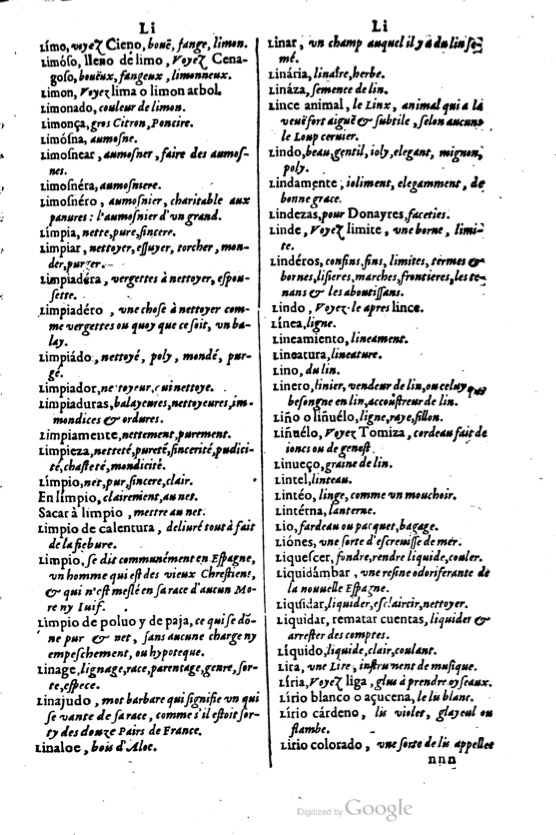 Li
Límo, voyez Cieno, bouë, fange, limon.
Limóſo, lleno de limo, Voyez Cena-
goſo, bouëux, fangeux, limonneux.
Limon, Voyez lima o limon arbol.
Limonado, couleur de limon.
Limonça, gros Citron, Poncire.
Limóſna, aumoſne.
Limoſnear, aumoſner, faire des aumoſ-
nes.
Limoſnéra, aumoſniere.
Limoſnéro, aumoſnier, charitable aux
panures : l'aumoſnier d'vn grand.
Límpia, nette, pure, ſincere.
Limpiar, nettoyer, eſſuyer, torcher, mon-
der, purger.
Limpiadéra, vergettes à nettoyer, eſpou-
ſette.
Limpiadéro, vne choſe à nettoyer com-
me vergettes ou quoy que ce ſoit, vn ba-
lay.
Limpiádo, nettoyé, poly, mondé, pur-
gé.
Limpiador, nettoyeur, qui nettoye.
Limpiaduras, balayeures, nettoyeures, im-
mondices & ordures.
Limpiamente, nettement, purement.
Limpieza, netteté, pureté, ſincerité, pudici-
té, chaſteté, mondicité.
Límpio, net, pur, ſincere, clair.
En límpio, clairement, au net.
Sacar à limpio, mettre au net.
Limpio de calentura, deliuré tout à fait
de la fiebure.
Limpio, ſe dit communément en Eſpagne,
vn homme qui eſt des vieux Chreſtiens,
& qui n'eſt meſlé en ſa race d'aucun Mo-
re ny Iuif.
Limpio de poluo y de paja, ce qui ſe dõ-
ne pur & net, ſans aucune charge ny
empeſchement, ou hypoteque.
Linage, lignage, race, parentage, genre, ſor-
te, eſpece.
Linajudo, mot barbare qui ſignifie vn qui
ſe vante de ſa race, comme s'il eſtoit ſor-
ty des douze Pairs de France.
Linaloe, bois d'Aloe.
Li
Linar, vn champ auquel il y a du lin ſe-
mé.
Linária, linaire, herbe.
Lináza, ſemence de lin.
Lince animal, le Linx, animal qui a la
veuë fort aiguë & ſubtile, ſelon aucuns
le Loup ceruier.
Lindo, beau, gentil, ioly, elegant, mignon,
poly.
Lindamente, ioliment, elegamment, de
bonne grace.
Lindezas, pour Donayres, faceties.
Linde, Voyez limite, vne borne, limi-
te.
Lindéros, confins, fins, limites, termes &
bornes, liſieres, marches, frontieres, les te-
nans & les aboutiſſans.
Lindo, Voyez-le apres lince.
Línea, ligne.
Lineamiento, lineament.
Lineatura, lineature.
Lino, du lin.
Linero, linier, vendeur de lin, ou celuy qui
beſongne en lin, accouſtreur de lin.
Liño o liñuélo, ligne, raye, ſillon.
Liñuélo, Voyez Tomiza, cordeau fait de
ioncs ou de geneſt.
Linueço, graine de lin.
Lintel, linteau.
Lintéo, linge, comme vn mouchoir.
Lintérna, lanterne.
Lio, fardeau ou pacquet, bagage.
Liónes, vne ſorte d'eſcreuiſſe de mer.
Liqueſcer, fondre, rendre liquide, couler.
Liquidámbar, vne reſine odoriferante de
la nouuelle Eſpagne.
Liquidar, liquider, eſclaircir, nettoyer.
Liquidar, rematar cuentas, liquider &
arreſter des comptes.
Líquido, liquide, clair, coulant.
Lira, vne Lire, inſtrument de muſique.
Líria, Voyez liga, glus à prendre oyſeaux.
Lírio blanco o açucena, le lis blanc.
Lírio cárdeno, lis violet, glayeul ou
flambe.
Lirio colorado, vne ſorte de lis appellee
nnn
Digitized by Google